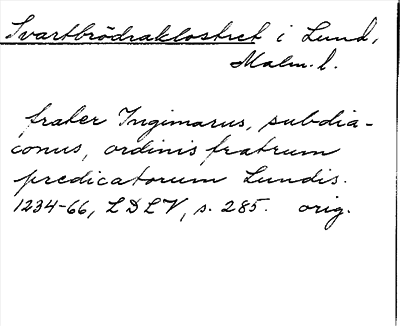 Svartbrödraklostret i Lund,
Malm. l.
frater Ingimarus, subdia-
conus, ordinis fratrum
predicatorum Lundis.
1234-66, LDLV, s. 285. orig.